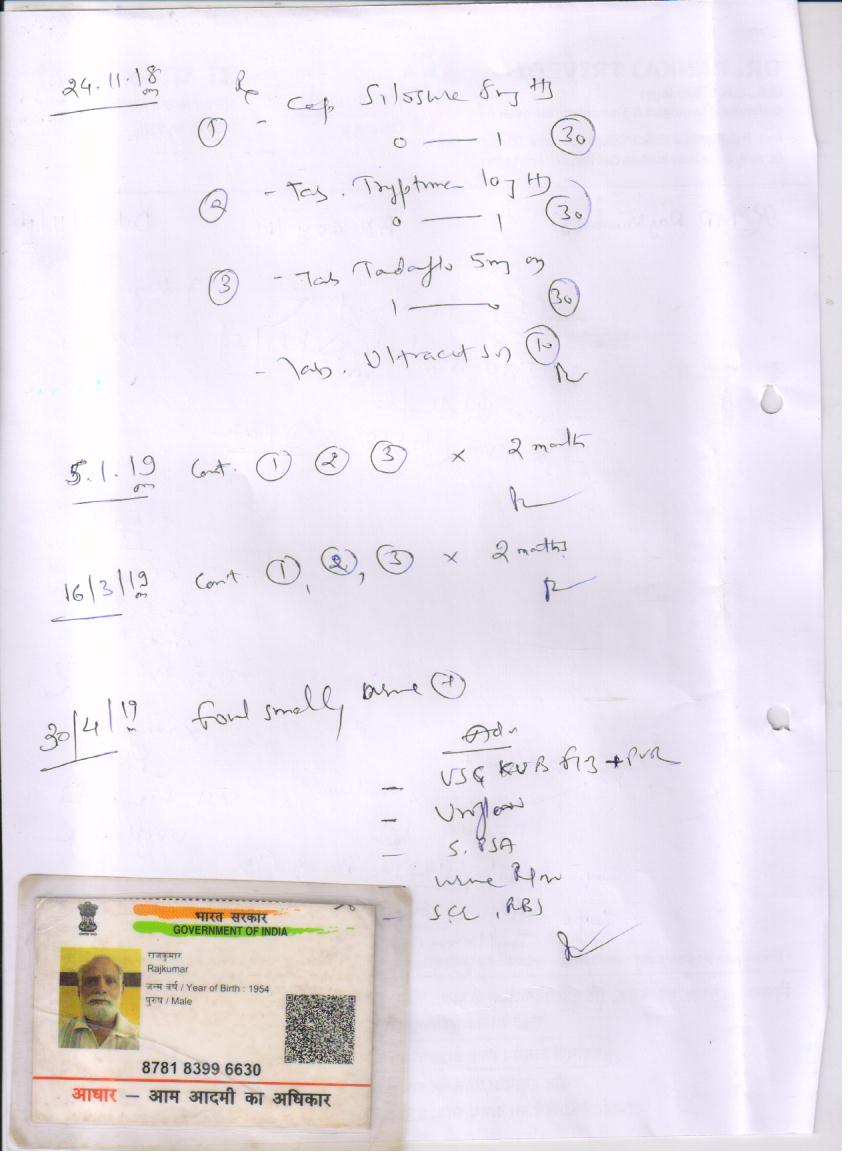 24.11.18
Rx
① - Cap. Silosure 8mg HS
0 — 1 (30)
② - Tab. Tryptmer 10mg HS
0 — 1 (30)
③ - Tab Tadaflo 5mg
1 — 0 (30)
- Tab. Ultracet (10)
5.1.19 Cont. ① ② ③ x 2 month
16/3/19 Cont ①, ②, ③ x 2 months
30/4/19 foul smelly urine (+)
Adv
- USG KUB + PVR
- Uroflow
- S. PSA
- urine R/m
- , RBS
भारत सरकार
GOVERNMENT OF INDIA
राजकुमार
Rajkumar
जन्म वर्ष / Year of Birth : 1954
पुरुष / Male
8781 8399 6630
आधार – आम आदमी का अधिकार